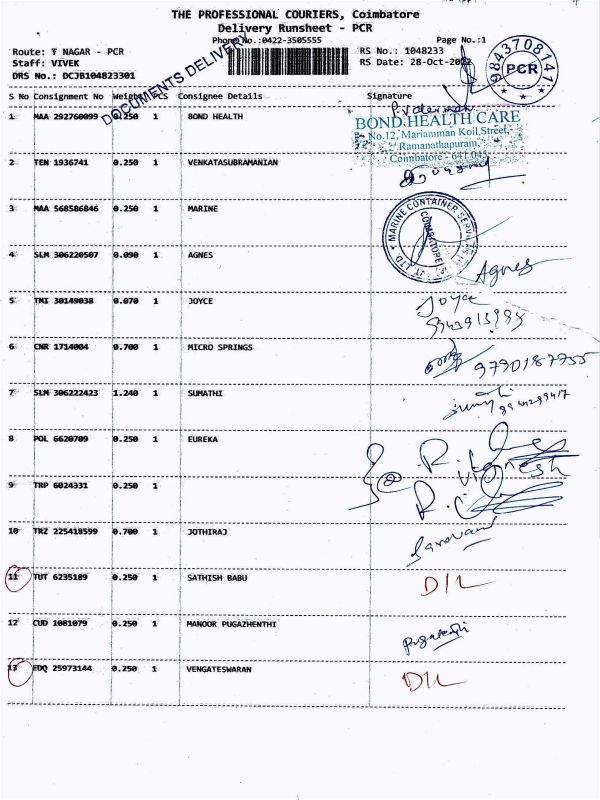 THE PROFESSIONAL COURIERS, Coimbatore
Delivery Runsheet - PCR
Phone No.:0422-3505555 Page No.:1
Route: T NAGAR - PCR RS No.: 1048233
Staff: VIVEK RS Date: 28-Oct-2022
DRS No.: DCJB104823301
DOCUMENTS DELIVERY
9843708141
PCR
S No Consignment No Weight PCS Consignee Details Signature
1 MAA 292760099 0.250 1 BOND HEALTH
BOND HEALTH CARE
No.12, Mariamman Koil Street,
Ramanathapuram,
Coimbatore - 641 045
2 TEN 1936741 0.250 1 VENKATASUBRAMANIAN
3 MAA 568586846 0.250 1 MARINE
MARINE CONTAINER SERVICES
COIMBATORE
4 SLM 306220507 0.090 1 AGNES Agnes
5 TMI 30149038 0.070 1 JOYCE Joyce
6 CNR 1714004 0.700 1 MICRO SPRINGS 9790187755
7 SLM 306222423 1.240 1 SUMATHI
8 POL 6620709 0.250 1 EUREKA R. Vignesh
9 TRP 6024331 0.250 1
10 TRZ 225418599 0.700 1 JOTHIRAJ Saravanan
11 TUT 6235189 0.250 1 SATHISH BABU D/L
12 CUD 1081079 0.250 1 MANOOR PUGAZHENTHI
13 EDQ 25973144 0.250 1 VENGATESWARAN D/L